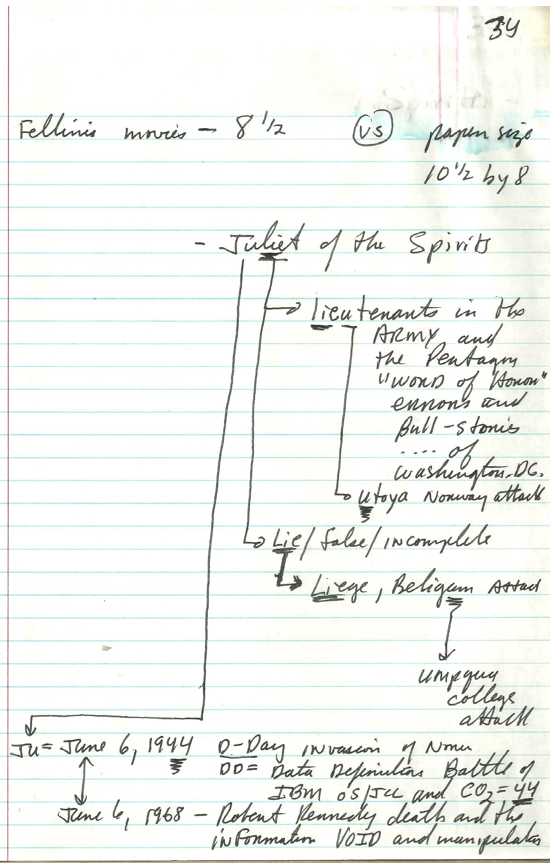 34
Fellinis movies - 8 1/2 vs paper size
10 1/2 by 8
- Juliet of the Spirits
lieutenants in the
ARMY and
the Pentagon
"WORD of Honor"
errors and
Bull-stories
.... of
Washington-DC.
Utoya Norway attack
Lie/false/incomplete
Liege, Beligum Attack
umpqua
college
attack
Ju = June 6, 1944 D-Day invasion of Norm
DD = Data Definition Battle of
IBM OS/JCL and CO2 = 44
June 6, 1968 - Robert Kennedy death and the
information VOID and manipulation